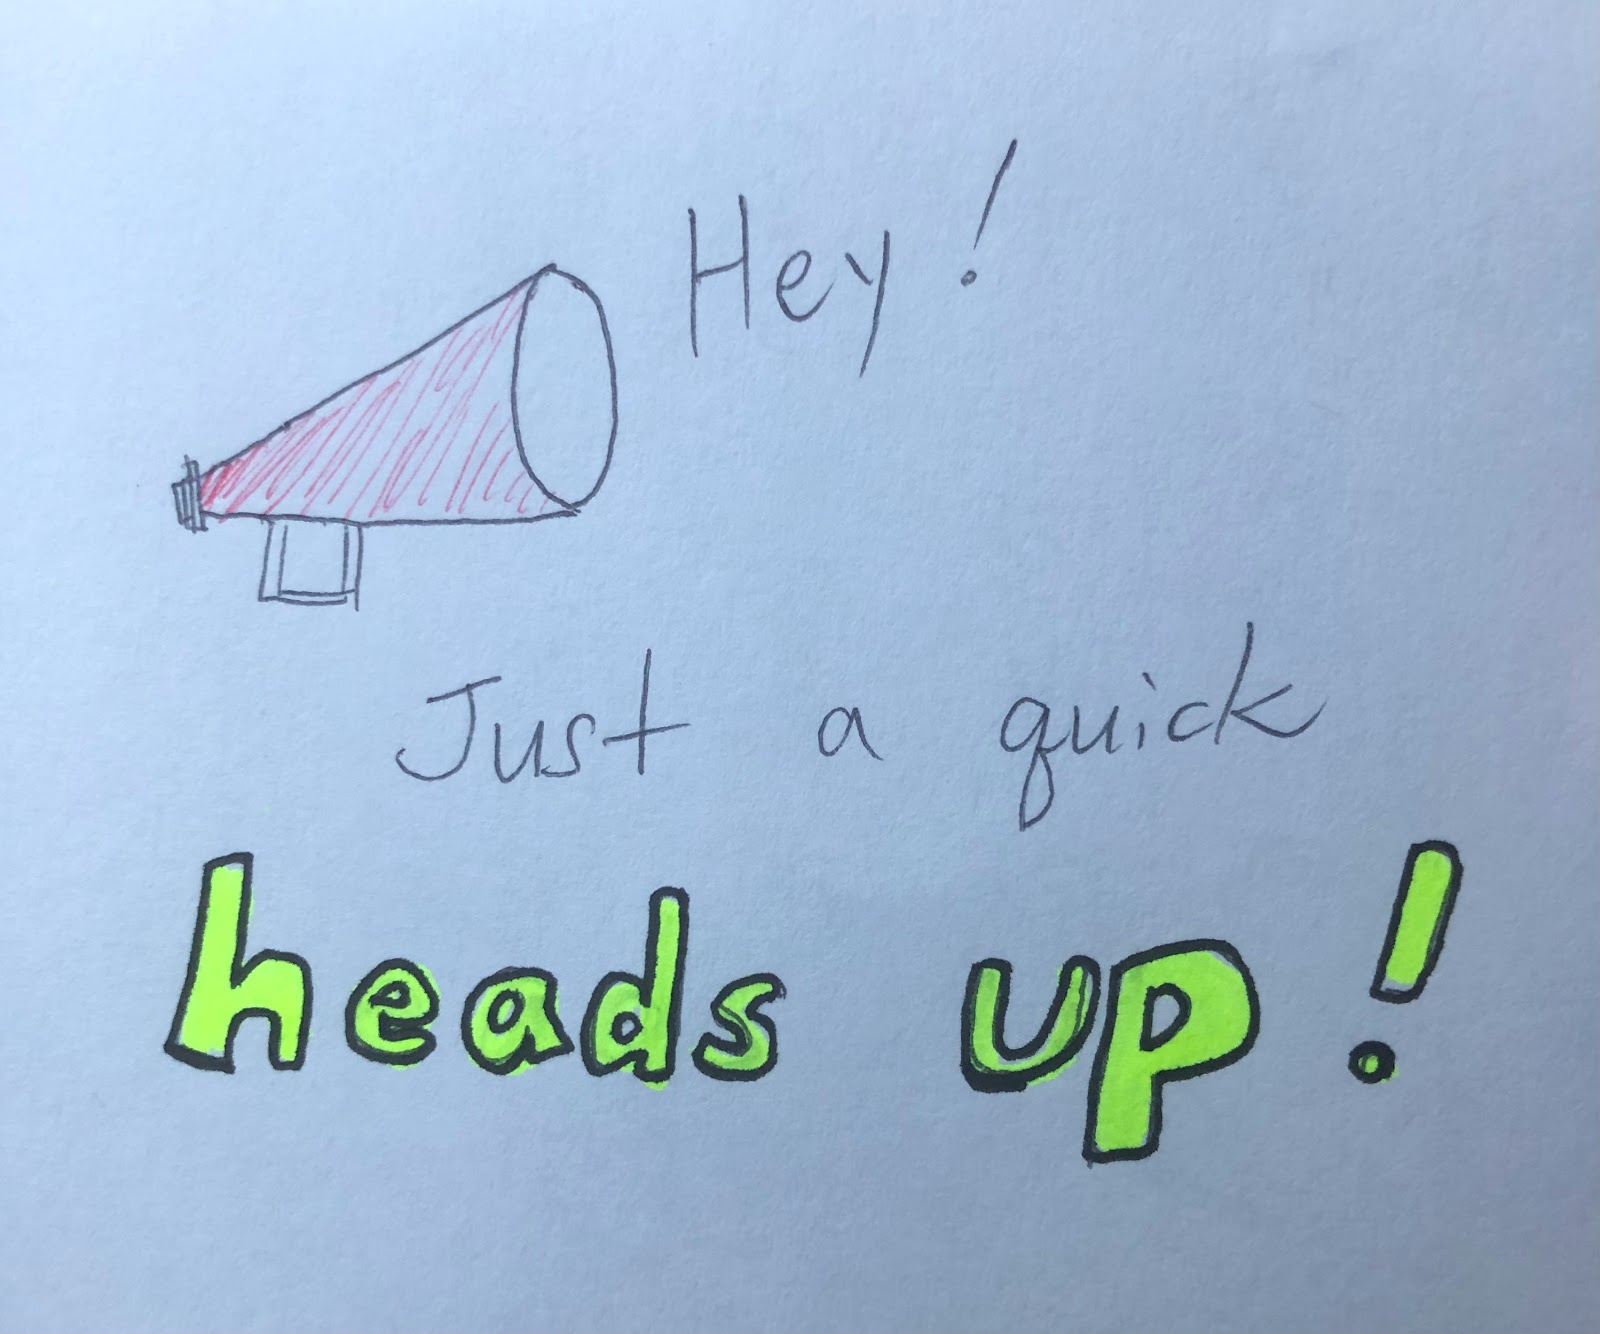 Hey!
Just a quick
heads up!